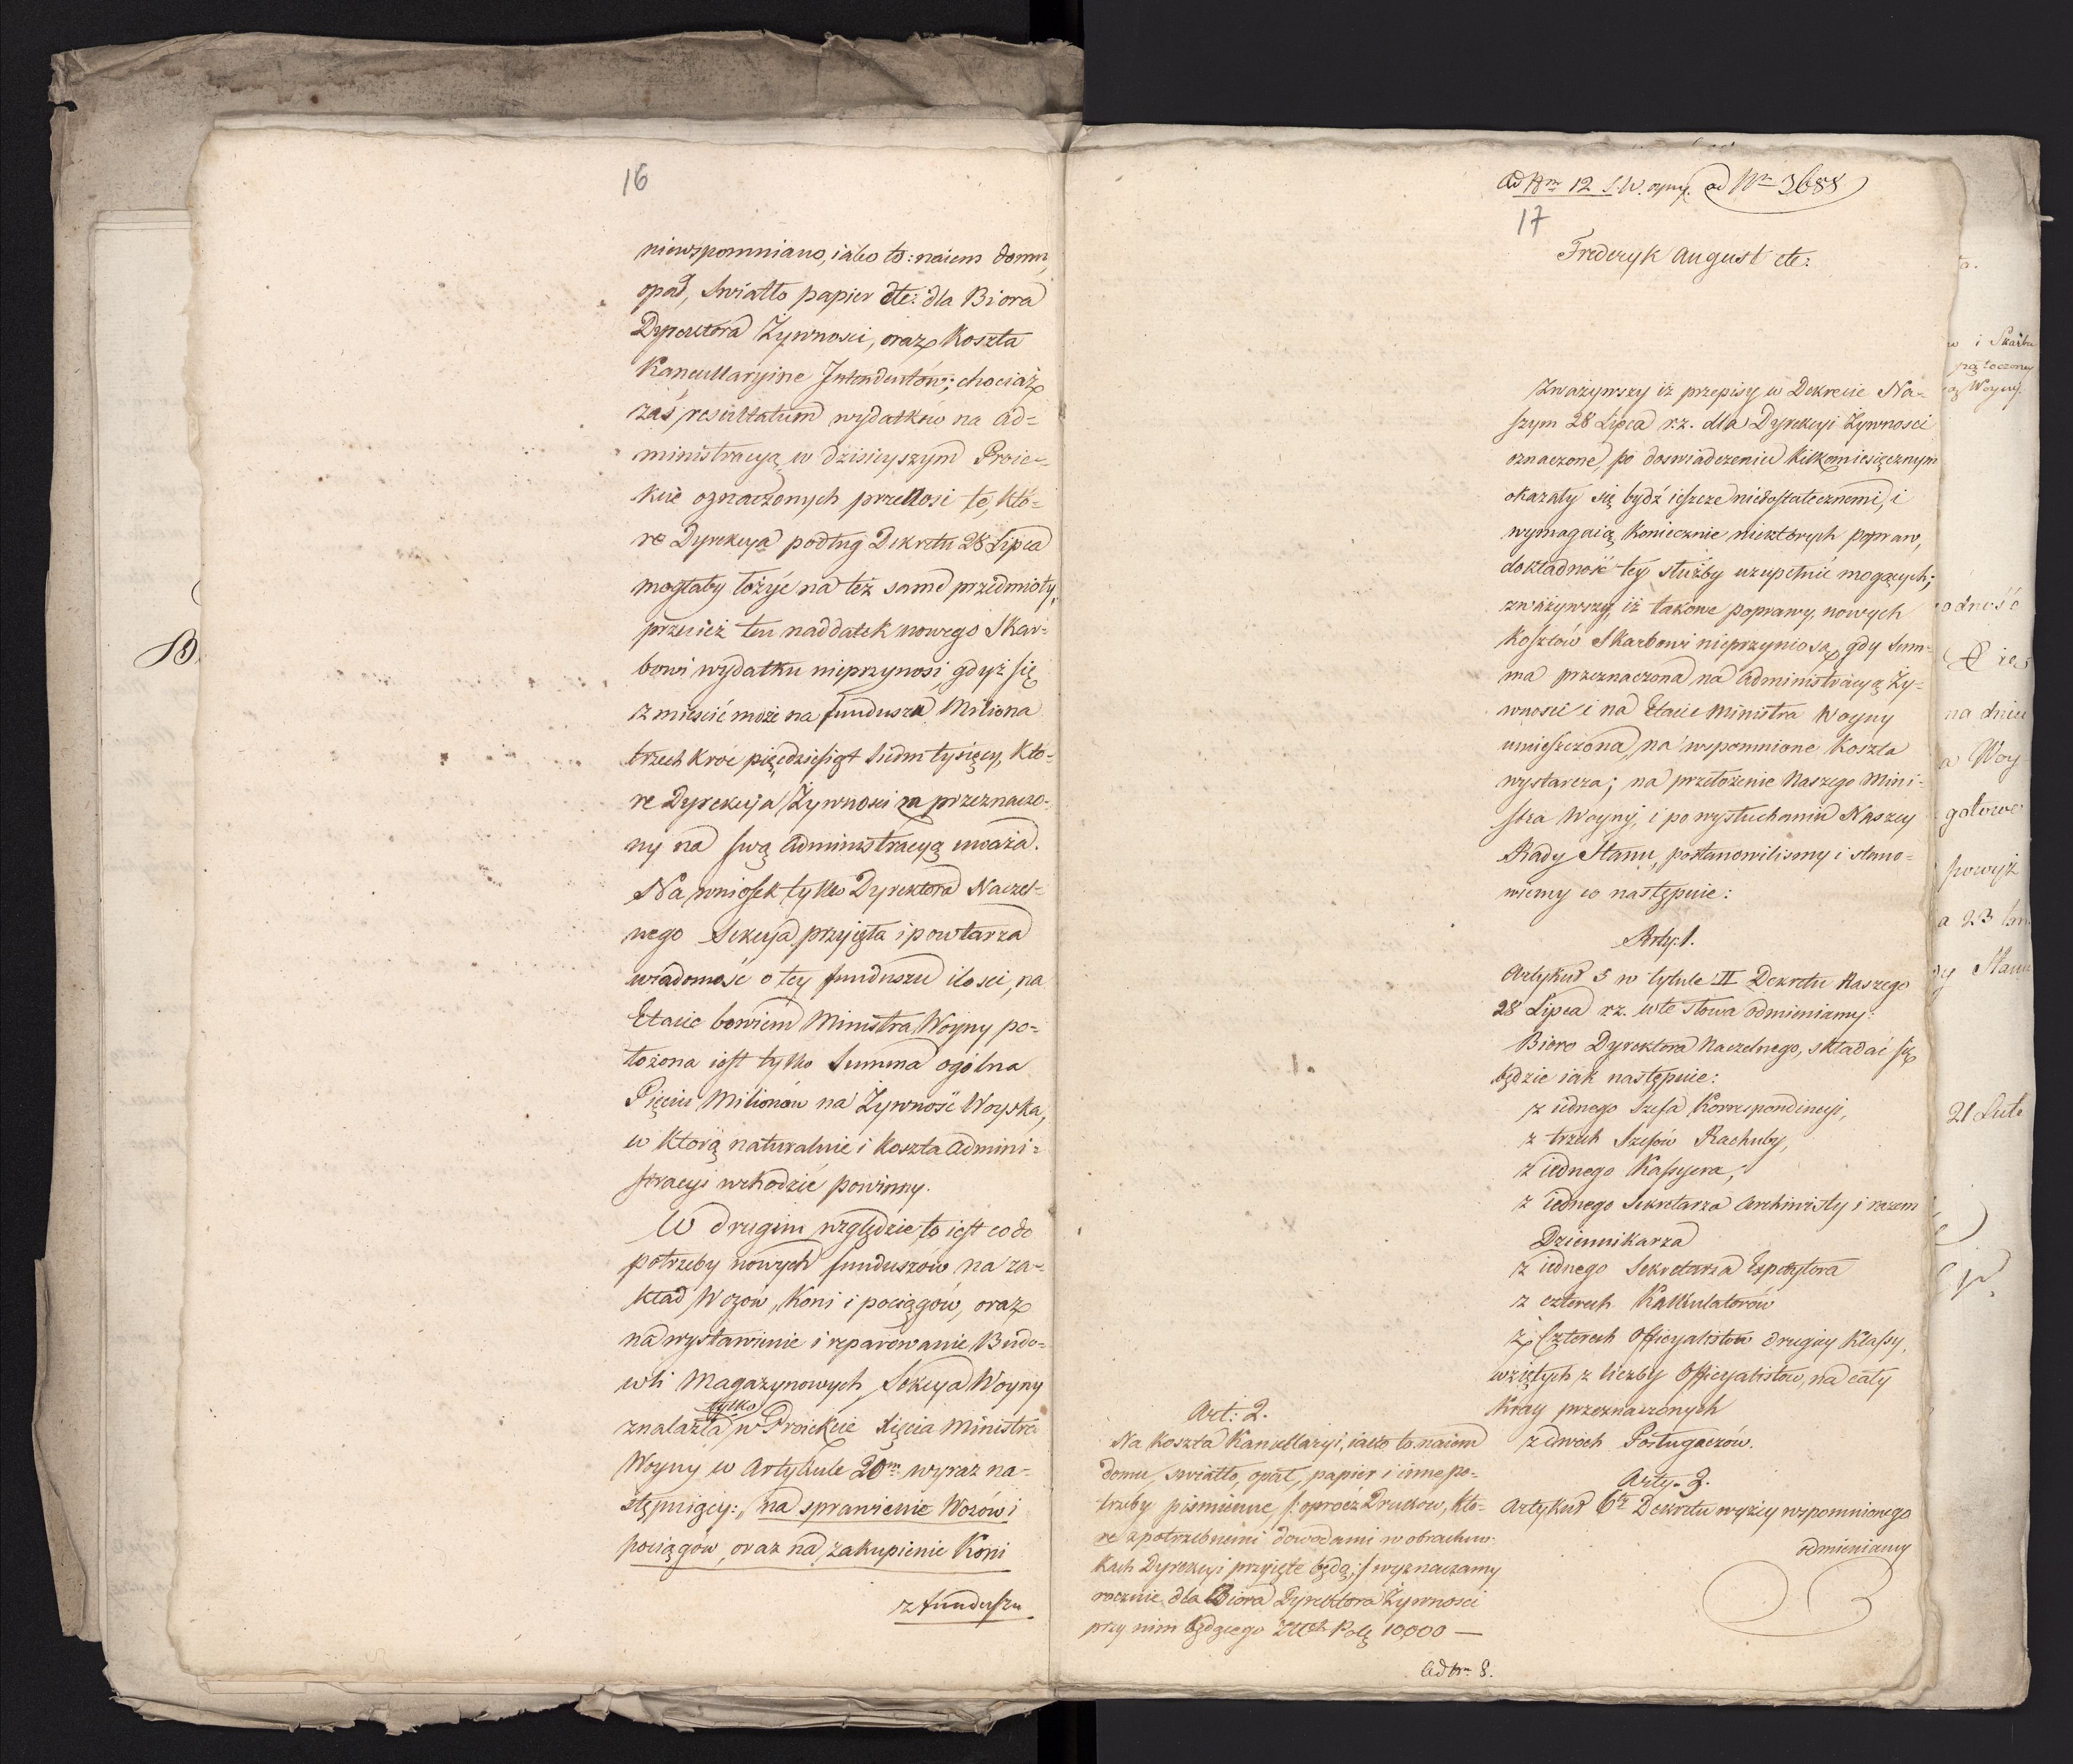 16
niewspomniano, iako to: naiem domu,
opał, Swiatło papier etc: dla Biora
Dyrektora Żywnosci, oraz Koszta
Kancellaryine Intendentów; chociaż
zaś resultatum wydatków na Ad=
ministracyą w dzisieyszym Proie=
kcie oznaczonych przenosi te, któ=
re Dyrekcya podług Dekretu 28 Lipca
mogłaby łożyć na też same przedmioty,
przecież ten naddatek nowego Skar=
bowi wydatku nieprzynosi, gdyż się
zmieścić może na funduszu Miliona
trzech kroć pięcdziesiąt siedm tysięcy, kto=
re Dyrekcya Żywnosci za przeznaczo=
ny na swą Administracyą uważa.
Na wniosek tylko Dyrektora Naczel=
nego Sekcya przyięła i powtarza
wiadomość o tey funduszu ilosci, na
Etacie bowiem Ministra Woyny po=
łożona iest tylko Summa ogólna
Pięciu Milionów na Żywność Woyska,
w którą naturalnie i koszta Admini=
stracyi wchodzić powinny.
W drugim względzie to iest co do
potrzeby nowych funduszów na za=
kład Wozów, Koni i pociągów, oraz
na wystawienie i reparowanie Budo=
wli Magazynowych Sekcya Woyny
tylko
znalazła w Proiekcie Xięcia Ministra
Woyny w Artykule 20m wyraz na=
stępuiący: „na sprawienie Wozów i
pociągów, oraz na zakupienie Koni
z funduszu
Ad Nm 12 S.W. ad Nm 3688
17
Frederyk August etc:
Zważywszy iż przepisy w Dekrecie Na=
szym 28 Lipca r.z. dla Dyrekcyi Żywnosci
oznaczone, po doswiadczeniu kilkomiesięcznym
okazały się bydź ieszcze niedostatecznemi, i
wymagaią koniecznie niektórych popraw,
dokładność tey służby uzupełnić mogących;
zważywszy, iż takowe poprawy, nowych
kosztów Skarbowi nieprzyniosą, gdy Sum=
ma przeznaczona na Administracyą Ży=
wnosci i na Etacie Ministra Woyny
umieszczona, na wspomnione Koszta
wystarcza; na przełożenie Naszego Mini=
stra Woyny, i po wysłuchaniu Naszey
Rady Stanu, postanowilismy i stano=
wiemy co następuie:
Arty: 1.
Artykuł 5 w tytule II Dekretu Naszego
28 Lipca r.z. w te słowa odmieniamy:
Bioro Dyrektora Naczelnego, składać się
będzie iak następuie:
z iednego Szefa Korrespondencyi,
z trzech Szefów Rachuby,
z iednego Kassyera,
z iednego Sekretarza Archiwisty i razem
Dziennikarza
z iednego Sekretarza Expedytora
z czterech Kalkulatorów
z Czterech Officyalistów drugiey Klassy,
wziętych z liczby Officyalistów, na cały
Kray przeznaczonych
z dwóch Posługaczów.
Art: 2.
Na koszta Kancellaryi, iako to naiem
domu, swiatło, opał, papier i inne po=
trzeby pismienne /: oprócz Druków, któ=
re z potrzebnemi dowodami w obrachun=
kach Dyrekcyi przyięte będą :/ wyznaczamy
rocznie dla Biora Dyrektora Żywnosci
przy nim będącego Złłch Pols 10,000 —
Ad Nrm 8.
Arty. 3.
Artykuł 6ty Dekretu wyżey wspomnionego
odmieniamy
B.
w i Skarbu
Woyny.
na dniu
a Woy
gotowe
powyż
a 23
Stanu
21 Lute